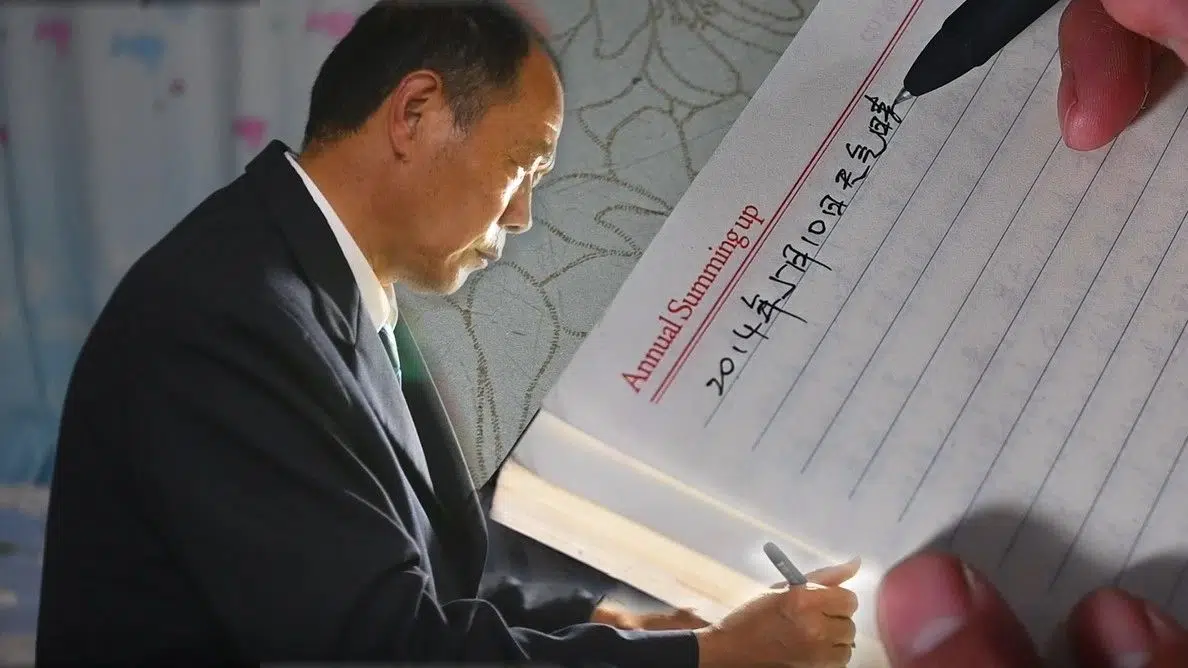 Annual Summing up
2014年5月10日天气晴